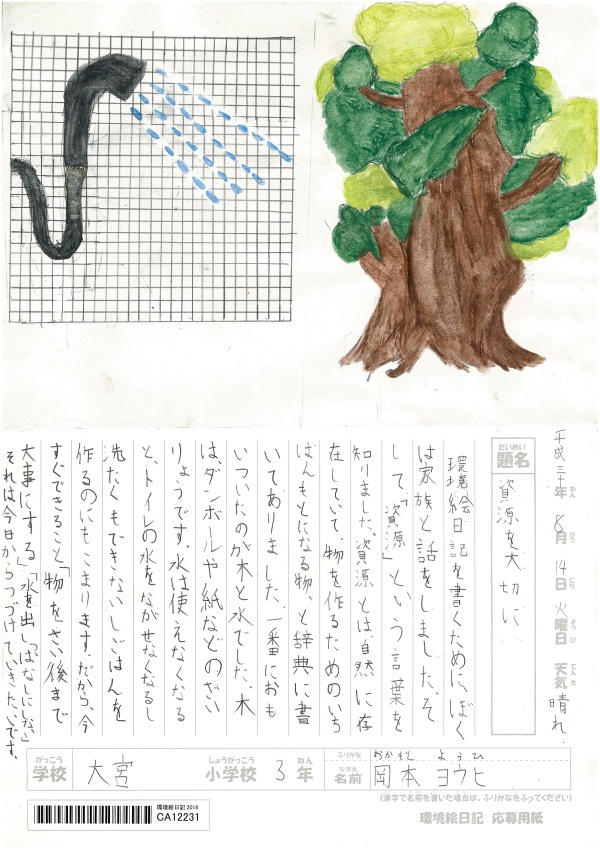 平成三十年ねん 8月がつ 14日にち 火曜日ようび 天気てんき 晴れ.
だいめい
題名
資源を大切に
環境絵日記を書くために、ぼく
は家族と話をしました。そ
して、「資源」という言葉を
知りました。資源とは自然に存
在していて、物を作るためのいち
ばんもとになる物、と辞典に書
いてありました。一番におも
いついたのが木と水でした。木
は、ダンボールや紙などのざい
りょうです。水は使えなくなる
と、トイレの水をながせなくなるし
洗たくもできないしごはんを
作るのにもこまります。だから、今
すぐできること「物をさい後まで
大事にする」「水を出しっぱなしにしない」
それは今日からつづけていきたいです。
がっこう
学校
大宮
しょうがっこう
小学校
3
ねん
年
ふりがな
おかもと ようひ
なまえ
名前
岡本 ヨウヒ
(漢字で名前を書いた場合は、ふりがなをふってください)
環境絵日記 2018
CA12231
環境絵日記 応募用紙